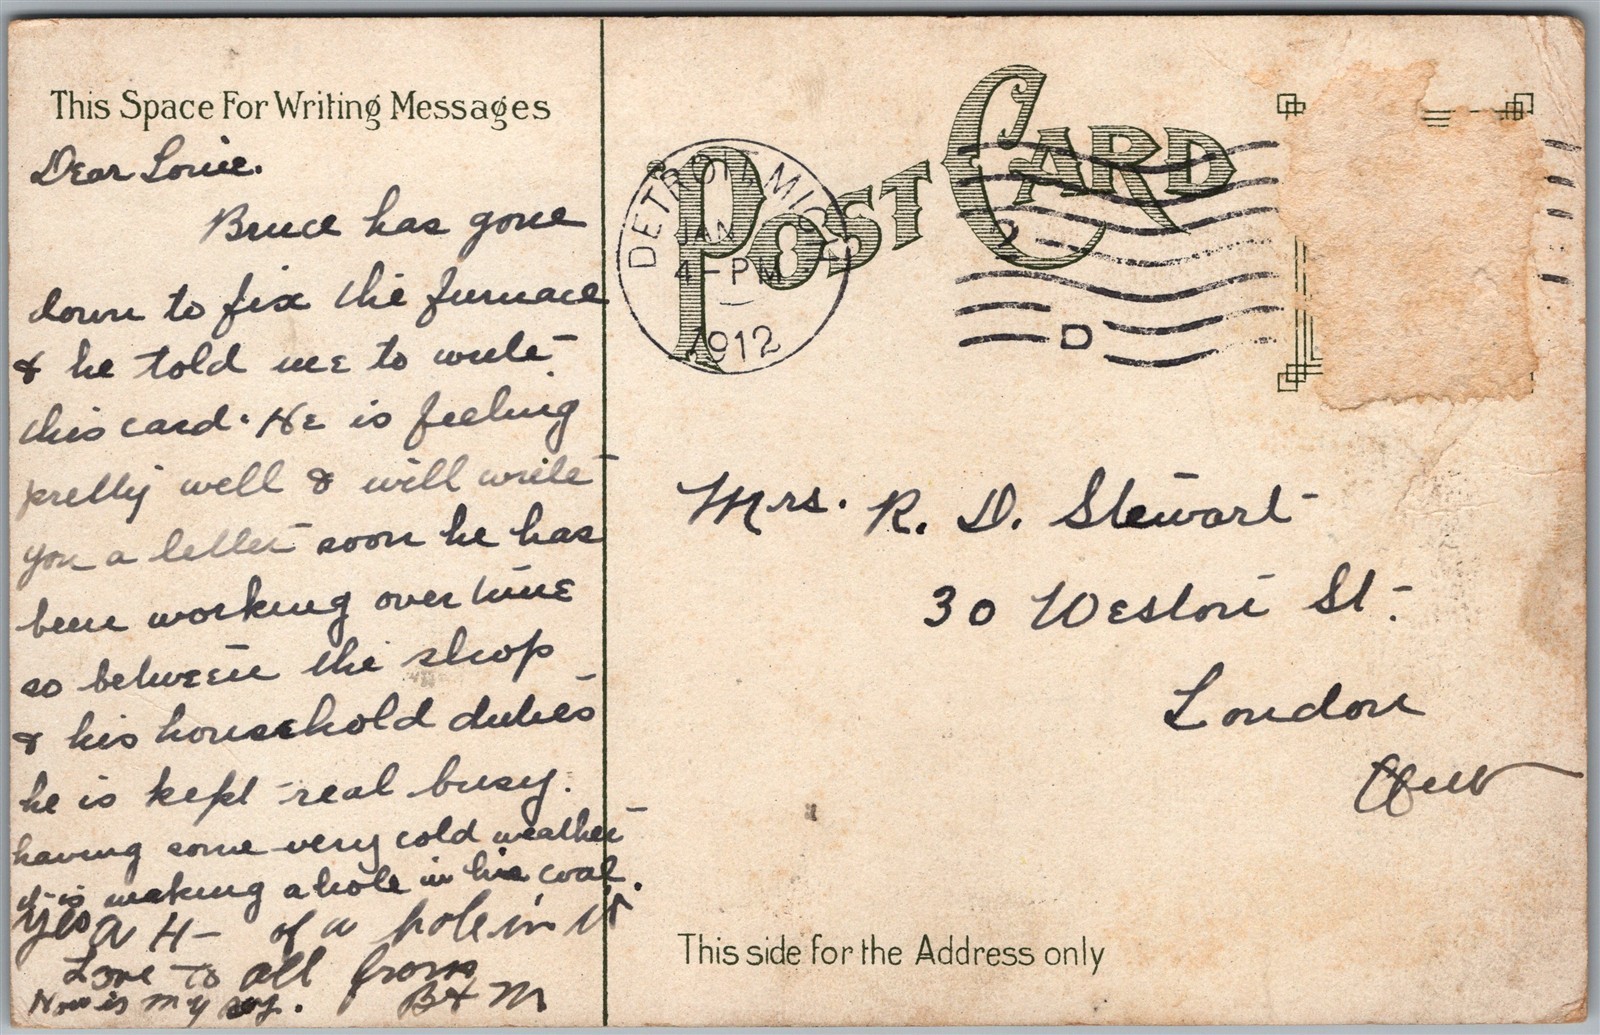 This Space For Writing Messages
Dear Louie.
Bruce has gone
down to fix the furnace
& he told me to write
this card. He is feeling
pretty well & will write
you a letter soon he has
been working over time
so between the shop
& his household duties
he is kept real busy.
having some very cold weather
it is making a hole in his coal.
Yes a H— of a hole in it
Love to all from
Now is my say. B & M
POST CARD
DETROIT, MICH.
JAN
4-PM
1912
D
Mrs. R. D. Stewart
30 Weston St.
London
Ont
This side for the Address only